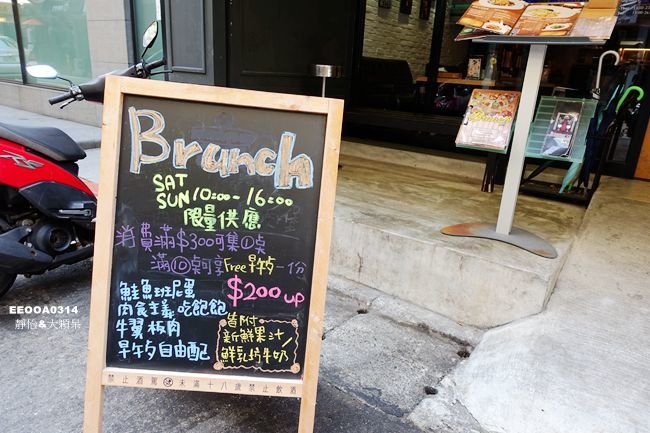 Brunch
SAT
SUN 10:00-16:00
限量供應
消費滿$300可集①桌
滿⑩桌可享Free早午一份
$200up
鮭魚班尼蛋
肉食主義吃飽飽
牛翼板肉
早午夕自由配
皆附
新鮮果汁/
鮮乳坊牛奶
禁止酒駕 未滿十八歲禁止飲酒
EEOOA0314
靜怡&大顆呆
RS